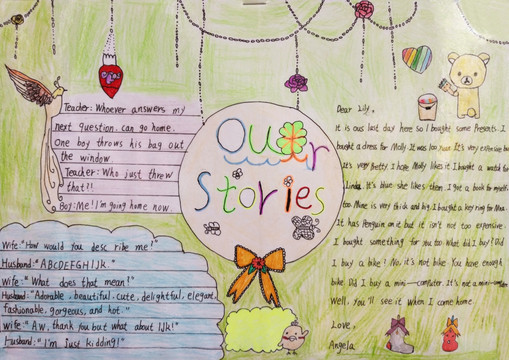 Teacher: Whoever answers my
next question, can go home.
One boy throws his bag out
the window.
Teacher: Who just threw
that?!
Boy: Me! I'm going home now.
Our
Stories
Wife: "How would you desc ribe me?"
Husband: "ABCDEFGHIJK."
Wife: "What does that mean?"
Husband: "Adorable, beautiful, cute, delightful, elegant,
fashionable, gorgeous, and hot."
Wife: "Aw, thank you but what about IJK!"
Husband: "I'm just kidding!"
Dear Lily,
It is our last day here so I bought some Presents. I
bought a dress for Molly. It was too It's very expensive but
It's very Pretty. I hope Molly likes it. I bought a watch for
Linda. It's blue she likes them. I got a book for myself
too. Mine is very thick and big. I bought a key ring for Mna.
It has Penguin on it but it isn't not too expensive.
I bought something for you too. What did I buy? Did
I buy a bike? No, it's not bike. You have enough
bike. Did I buy a mini-computer. It's not a mini-computer
Well, You'll see it when I come home.
Love,
Angela